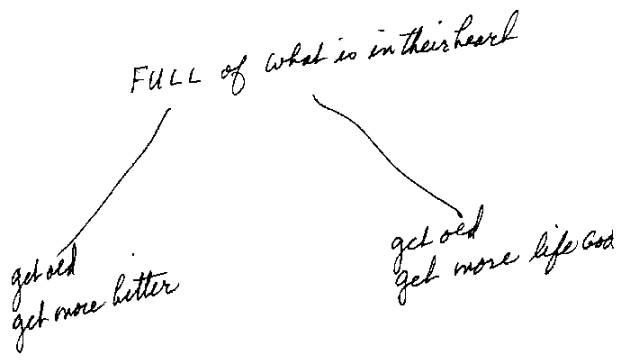 FULL of what is in their heart
get old
get more bitter
get old
get more life God